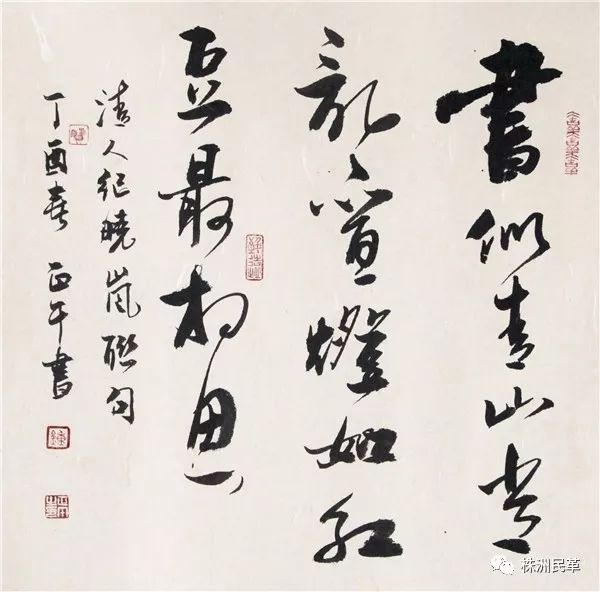 書似青山常
亂疊燈如紅
豆最相思
清人紀曉嵐聯句
丁酉春 正午書
株洲民革